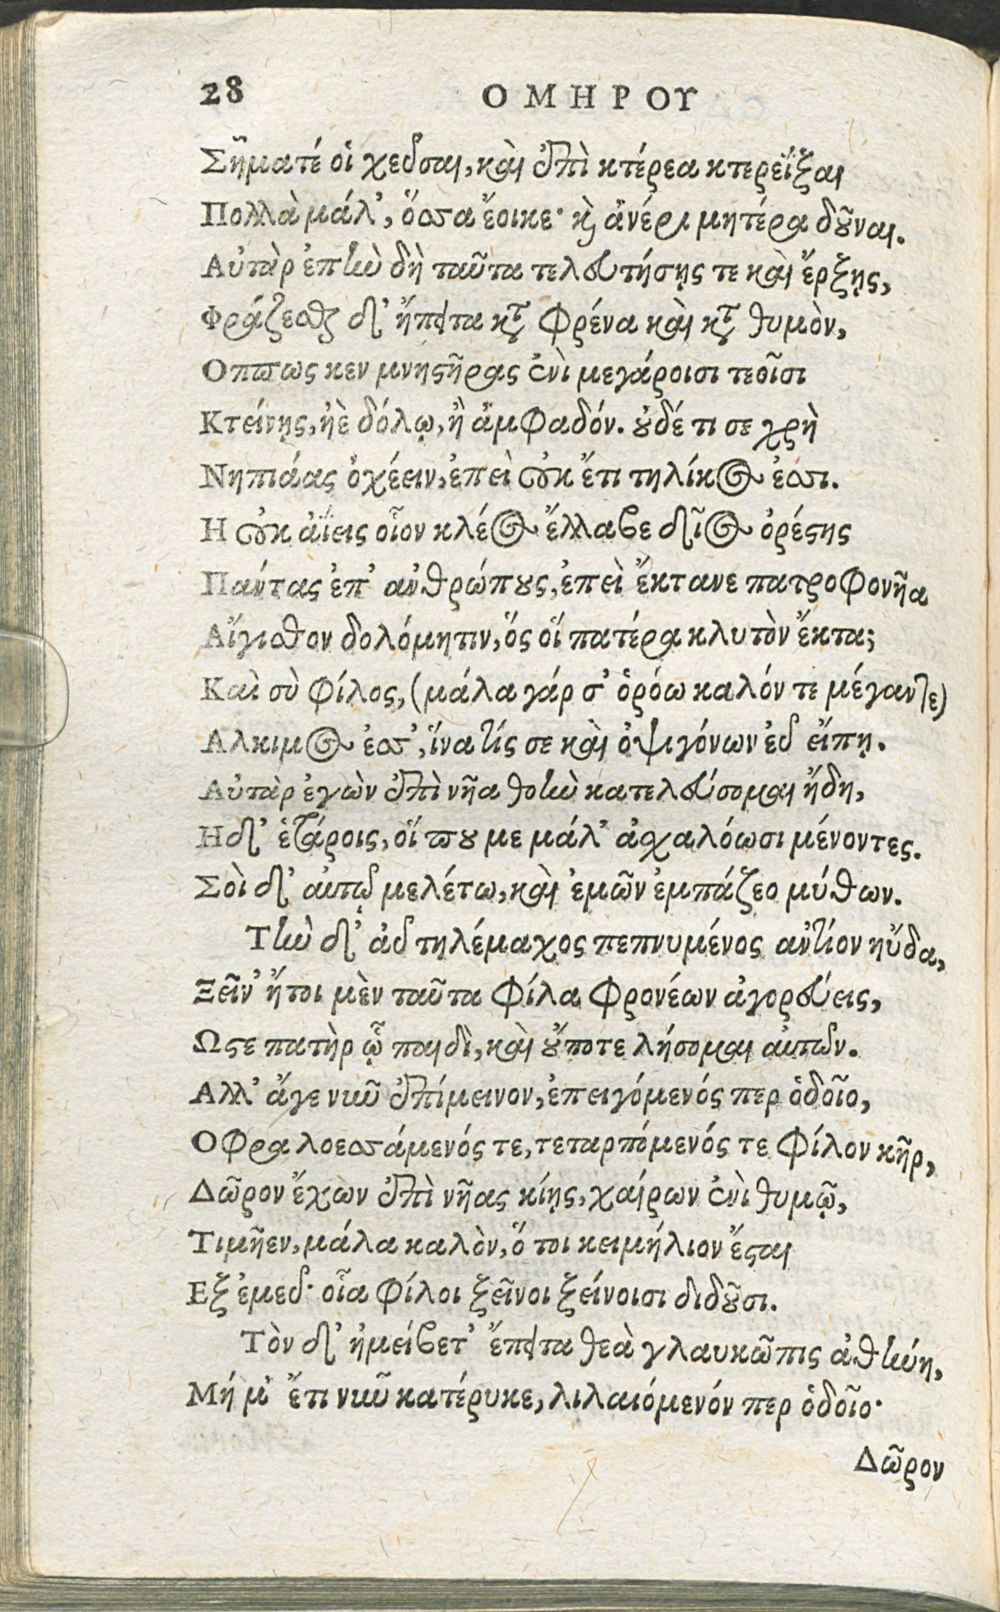 28 ΟΜΗΡΟΥ
Σῆμα τέ οἱ χεῦσαι, καὶ ἐπὶ κτέρεα κτερεΐξαι
Πολλὰ μάλ', ὅσσα ἔοικε· καὶ ἀνέρι μητέρα δοῦναι.
Αὐτὰρ ἐπὴν δὴ ταῦτα τελευτήσῃς τε καὶ ἔρξῃς,
Φράζεσθαι δ' ἤπειτα κατὰ φρένα καὶ κατὰ θυμὸν,
Οππως κεν μνηστῆρας ἐνὶ μεγάροισι τεοῖσι
Κτείνῃς, ἠὲ δόλῳ, ἢ ἀμφαδόν. οὐδέ τι σε χρὴ
Νηπιάας ὀχέειν, ἐπεὶ οὐκ ἔτι τηλίκος ἐσσι.
Η οὐκ ἀΐεις οἷον κλέος ἔλλαβε δῖος ὀρέστης
Πάντας ἐπ' ἀνθρώπους, ἐπεὶ ἔκτανε πατροφονῆα
Αἴγισθον δολόμητιν, ὅς οἱ πατέρα κλυτὸν ἔκτα;
Καὶ σὺ φίλος, (μάλα γάρ σ' ὁρόω καλόν τε μέγαν τε)
Αλκιμος ἐσσ', ἵνα τίς σε καὶ ὀψιγόνων ἐῢ εἴπῃ.
Αὐτὰρ ἐγὼν ἐπὶ νῆα θοὴν κατελεύσομαι ἤδη,
Ηδ' ἑτάροις, οἵ που με μάλ' ἀσχαλόωσι μένοντες.
Σοὶ δ' αὐτῷ μελέτω, καὶ ἐμῶν ἐμπάζεο μύθων.
Τὴν δ' αὖ τηλέμαχος πεπνυμένος ἀντίον ηὔδα,
Ξεῖν' ἤτοι μὲν ταῦτα φίλα φρονέων ἀγορεύεις,
Ωστε πατὴρ ᾧ παιδὶ, καὶ οὔποτε λήσομαι αὐτῶν.
Αλλ' ἄγε νῦν ἐπίμεινον, ἐπειγόμενός περ ὁδοῖο,
Οφρα λοεσσάμενός τε, τεταρπόμενός τε φίλον κῆρ,
Δῶρον ἔχων ἐπὶ νῆας κίῃς, χαίρων ἐνὶ θυμῷ,
Τιμῆεν, μάλα καλὸν, ὅ τοι κειμήλιον ἔσται
Εξ ἐμεῦ· οἷα φίλοι ξεῖνοι ξείνοισι διδοῦσι.
Τὸν δ' ἠμείβετ' ἔπειτα θεὰ γλαυκῶπις ἀθήνη,
Μή μ' ἔτι νῦν κατέρυκε, λιλαιόμενόν περ ὁδοῖο·
Δῶρον